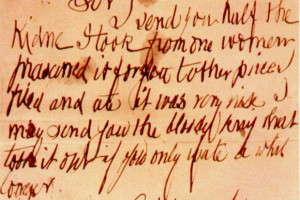 Sor
I send you half the
Kidne I took from one women
prasarved it for you tother piece I
fried and ate it was very nise I
may send you the bloody knif that
took it out if you only wate a whil
longer